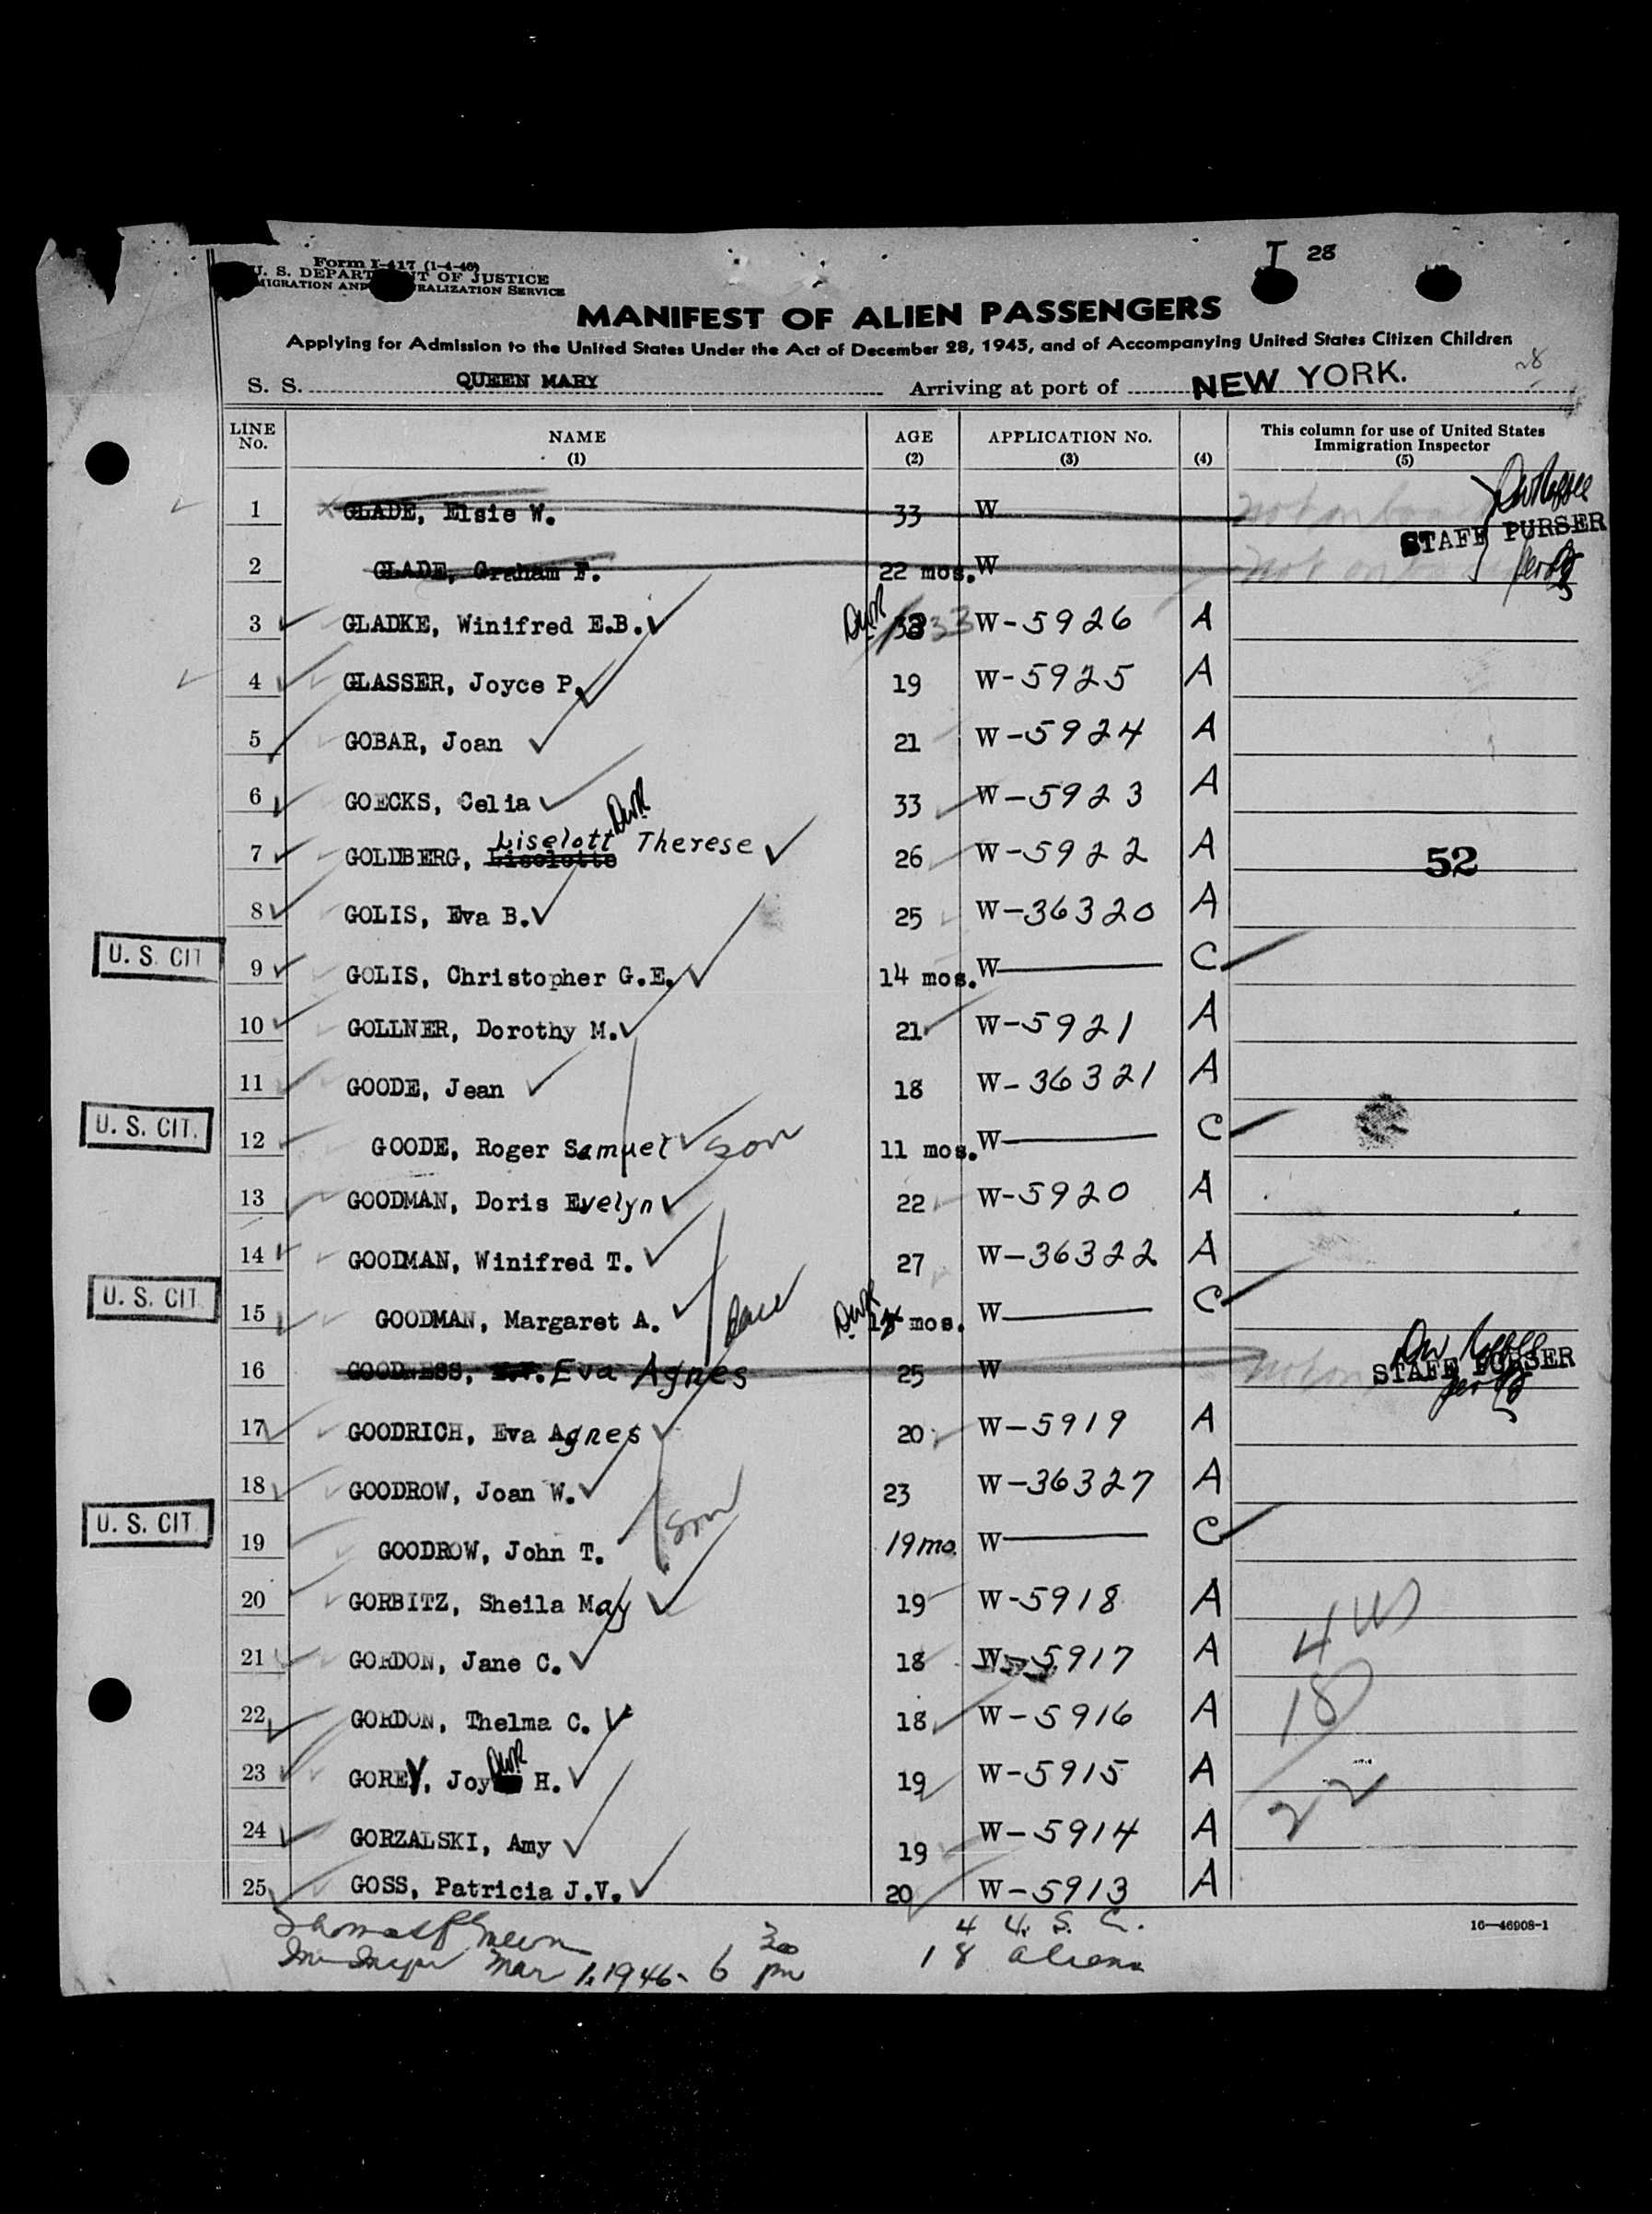 T 28
Form I-417 (1-4-46)
U. S. DEPARTMENT OF JUSTICE
IMMIGRATION AND NATURALIZATION SERVICE
MANIFEST OF ALIEN PASSENGERS
Applying for Admission to the United States Under the Act of December 28, 1945, and of Accompanying United States Citizen Children
28
S. S. QUEEN MARY Arriving at port of NEW YORK.
LINE No. NAME (1) AGE (2) APPLICATION No. (3) (4) This column for use of United States Immigration Inspector (5)
1 GLADE, Elsie W. 33 W not on board
STAFF PURSER
2 GLADE, Graham F. 22 mos. W not on
3 GLADKE, Winifred E.B. DWR 33 W-5926 A
4 GLASSER, Joyce P. 19 W-5925 A
5 GOBAR, Joan 21 W-5924 A
6 GOECKS, Celia 33 W-5923 A
7 GOLDBERG, Liselotte Liselott DWR Therese 26 W-5922 A 52
8 GOLIS, Eva B. 25 W-36320 A
U. S. CIT 9 GOLIS, Christopher G.E. 14 mos. W C
10 GOLLNER, Dorothy M. 21 W-5921 A
11 GOODE, Jean 18 W-36321 A
U. S. CIT. 12 GOODE, Roger Samuel son 11 mos. W C
13 GOODMAN, Doris Evelyn 22 W-5920 A
14 GOODMAN, Winifred T. 27 W-36322 A
U. S. CIT. 15 GOODMAN, Margaret A. DWR mos. W C
16 GOODNESS, Eva Agnes 25 W not on STAFF PURSER
17 GOODRICH, Eva Agnes 20 W-5919 A
18 GOODROW, Joan W. 23 W-36327 A
U. S. CIT. 19 GOODROW, John T. son 19 mo. W C
20 GORBITZ, Sheila May 19 W-5918 A 4 US
21 GORDON, Jane C. 18 W-5917 A
22 GORDON, Thelma C. 18 W-5916 A 18
23 GOREY, Joy DWR H. 19 W-5915 A
24 GORZALSKI, Amy 19 W-5914 A 22
25 GOSS, Patricia J.V. 20 W-5913 A
4 U. S. C. 16—46908-1
Mar 1, 1946 - 6 30 pm 18 aliens